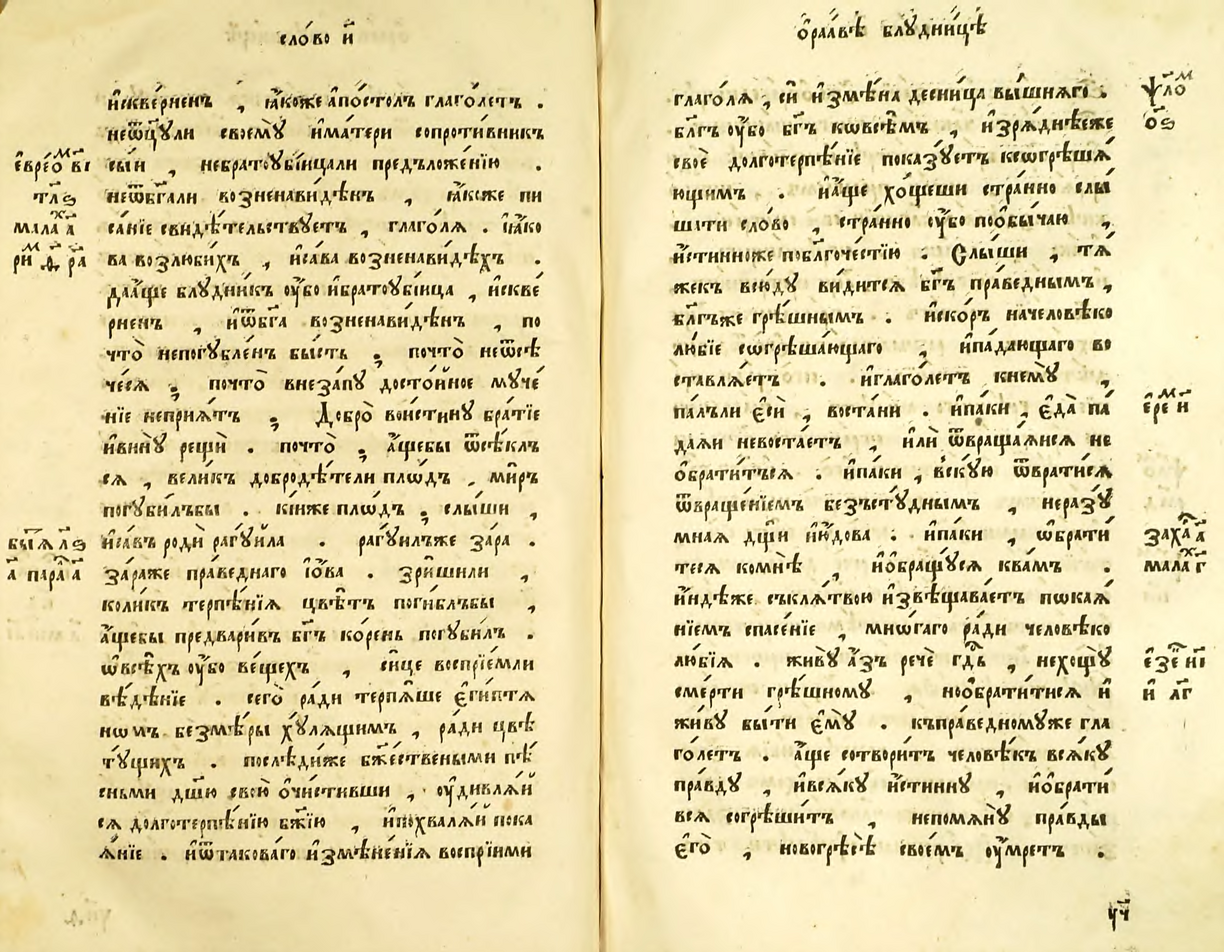 сло́во и҃
и҆скве́рненъ , ꙗ҆́коже а҆по́столъ глаго́летъ .
неѿц҃ули своемꙋ̀ и҆ма́тери сопроти́вникъ
е҆вре́ѡⷨ в҃і
сы́и , небратоꙋбі́ицали предъложе́нїю .
тл҃ѕ
неѿбг҃али возненави́дѣнъ , ꙗ҆́коже пи
малаⷯ а҃
са́нїе свидѣ́тельствꙋетъ , глаго́лѧ . і҆ꙗ́ко
риⷨ ѳ҃ ра҃
ва возлюби́хъ , и҆са́ва возненави́дѣхъ .
даа҆́ще блꙋдни́къ оу҆́бо и҆братоꙋбі́ица , и҆скве́
рненъ , и҆ѿбг҃а возненави́дѣнъ , по
что̀ непогꙋбле́нъ бы́сть ; почто̀ неѿсѣ
че́сѧ ; почто̀ внеза́пꙋ досто́йное мꙋче́
нїе непрїѧ́тъ ; Добро̀ вои́стинꙋ бра́тїе
и҆винꙋ̀ рещѝ . почто̀ ; а҆́щебы ѿсѣ́клъ
сѧ , вели́къ добродѣ́тели пло́дъ , ми́ръ
погꙋби́лъбы . кі́иже пло́дъ ; слы́ши ,
бы҃ѧ л҃ѕ
и҆са́въ родѝ рагꙋи́ла . рагꙋи́лъже за́ра .
а҃ пара҃ а҃
за́раже пра́веднаго і҆ѡ́ва . зри́шили ,
коли́къ терпѣ́нїѧ цвѣ́тъ поги́блъбы ,
а҆́щебы предвари́въ бг҃ъ ко́рень погꙋби́лъ .
ѡ҆всѣ́хъ оу҆́бо ве́щехъ , си́це воспрїе́мли
вѣ́дѣнїе . сего̀ ра́ди терпѧ́ше є҆гі́птѧ
нѡмъ безмѣ́ры хꙋ́лѧщимъ , ра́ди цвѣ
тꙋ́щихъ . послѣ́диже бж҃е́ствеными пѣ́
сньми дш҃ю свою̀ ѡ҆чи́стивши , оу҆дивлѧ́й
сѧ долготерпѣ́нїю бж҃їю , и҆похвалѧ́й пока
ѧ́нїе . и҆ѿтакова́го и҆змѣне́нїѧ воспрїими

ѡ҆раа́вѣ блꙋдни́цѣ
глаго́лѧ , сѝ и҆змѣ́на десни́ца вы́шнѧгѡ .
ѱⷨ ло
бл҃гъ оу҆́бо бг҃ъ ковсѣ́мъ , и҆зрѧ́днѣеже
о҃ѕ
своѐ долготерпѣ́нїе пока́зꙋетъ ксогрѣша́
ющимъ . и҆а҆́ще хо́щеши стра́нно слы́
шати сло́во , стра́нно оу҆́бо поѡ҆бы́чаю ,
и҆́стинноже поблг҃оче́стїю : Слы́ши , тѧ́
жекъ всю́дꙋ ви́дитсѧ бг҃ъ пра́веднымъ ,
бл҃гъже грѣ́шнымъ . и҆ско́ръ начеловѣко
лю́бїе сѡгрѣша́ющаго , и҆па́дающаго во
ставлѧ́етъ . и҆глаго́летъ кнемꙋ̀ ,
па́лъли є҆сѝ , воста́ни . и҆па́ки , є҆да̀ па́
е҆реⷨ и҃
даѧи невоста́етъ , и҆лѝ ѿвраща́ѧисѧ не
ѡ҆брати́тьсѧ . и҆па́ки , вскꙋ́ю ѿврати́сѧ
ѿвраще́нїемъ безъстꙋ́днымъ , неразꙋ́
мнаѧ дщ҃и і҆ю́дова : и҆па́ки , ѡ҆брати́
заха҃ а҃
тесѧ комнѣ̀ , и҆ѡ҆бращꙋ́сѧ ква́мъ .
малаⷯ г҃
и҆́ндѣже съклѧ́твою и҆звѣщава́етъ покаѧ́
нїемъ спасе́нїе , мно́гаго ра́ди человѣко
лю́бїѧ . живꙋ̀ а҆́зъ речѐ гд҃ь , нехощꙋ̀
є҆зе҃ н҃і
сме́рти грѣ́шномꙋ , ноѡ҆брати́тисѧ и҆
и҃ л҃г
живꙋ бы́ти є҆мꙋ̀ . къпра́ведномꙋже гла
го́летъ . а҆́ще сотвори́тъ человѣ́къ всѧ́кꙋ
пра́вдꙋ , и҆всѧ́кꙋ и҆́стиннꙋ , и҆ѡ҆брати́
всѧ согрѣши́тъ , непомѧнꙋ̀ пра́вды
є҆гѡ̀ , новогрѣ́сѣ свое́мъ оу҆́мретъ .